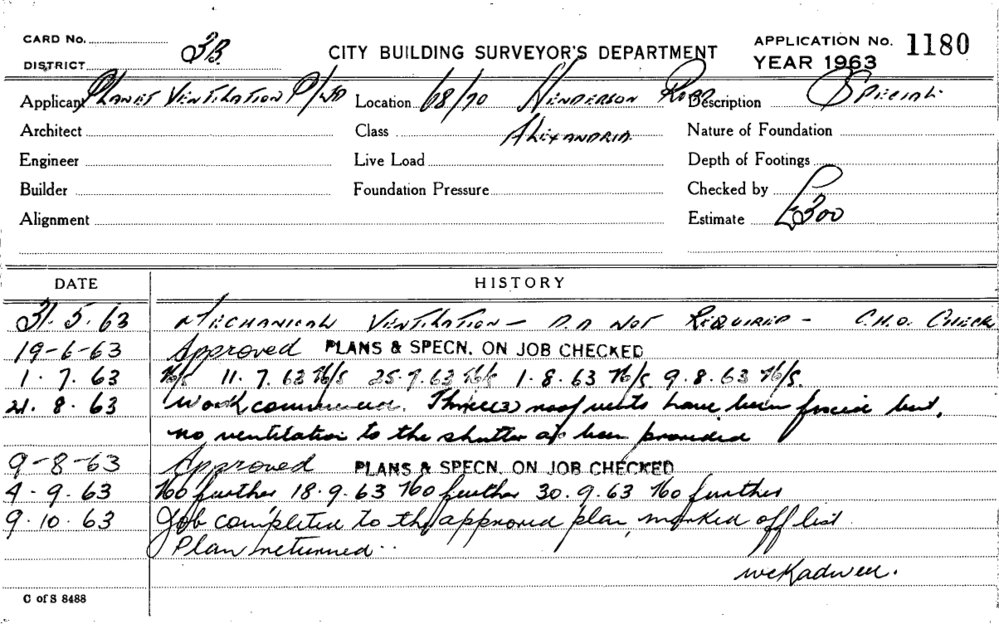 CARD No. CITY BUILDING SURVEYOR'S DEPARTMENT APPLICATION No. 1180
DISTRICT 3B YEAR 1963
Applicant PLANET VENTILATION P/LTD Location 68/70 HENDERSON ROAD Description SPECIAL
Architect Class ALEXANDRIA Nature of Foundation
Engineer Live Load Depth of Footings
Builder Foundation Pressure Checked by
Alignment Estimate £300
DATE HISTORY
31.5.63 MECHANICAL VENTILATION - D.A NOT REQUIRED - C.H.O. CHECK
19-6-63 Approved PLANS & SPECN. ON JOB CHECKED
1.7.63 N/S 11.7.63 N/S 25.7.63 N/S 1.8.63 N/S 9.8.63 N/S.
21.8.63 Work commence. Three(3) roof vents have been but,
no ventilation to the shutter as been provided
9-8-63 Approved PLANS & SPECN. ON JOB CHECKED
4.9.63 No further 18.9.63 No further 30.9.63 No further
9.10.63 Job completed to the approved plan, marked off list.
Plan returned..
C of S 8488